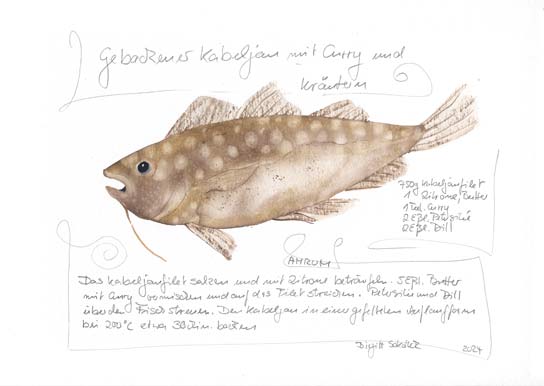 Gebackener Kabeljau mit Curry und
Kräutern
750g Kabeljaufilet
1 Zitrone, Butter
1 Teel. Curry
2 Eßl. Petersilie
2 Eßl. Dill
AHRUM
Das Kabeljaufilet salzen und mit Zitrone beträufeln. 5 Eßl. Butter
mit Curry vermischen und auf das Filet streichen. Petersilie und Dill
über den Fisch streuen. Den Kabeljau in einer gefetteten Auflaufform
bei 200°C etwa 30 Min. backen
2024